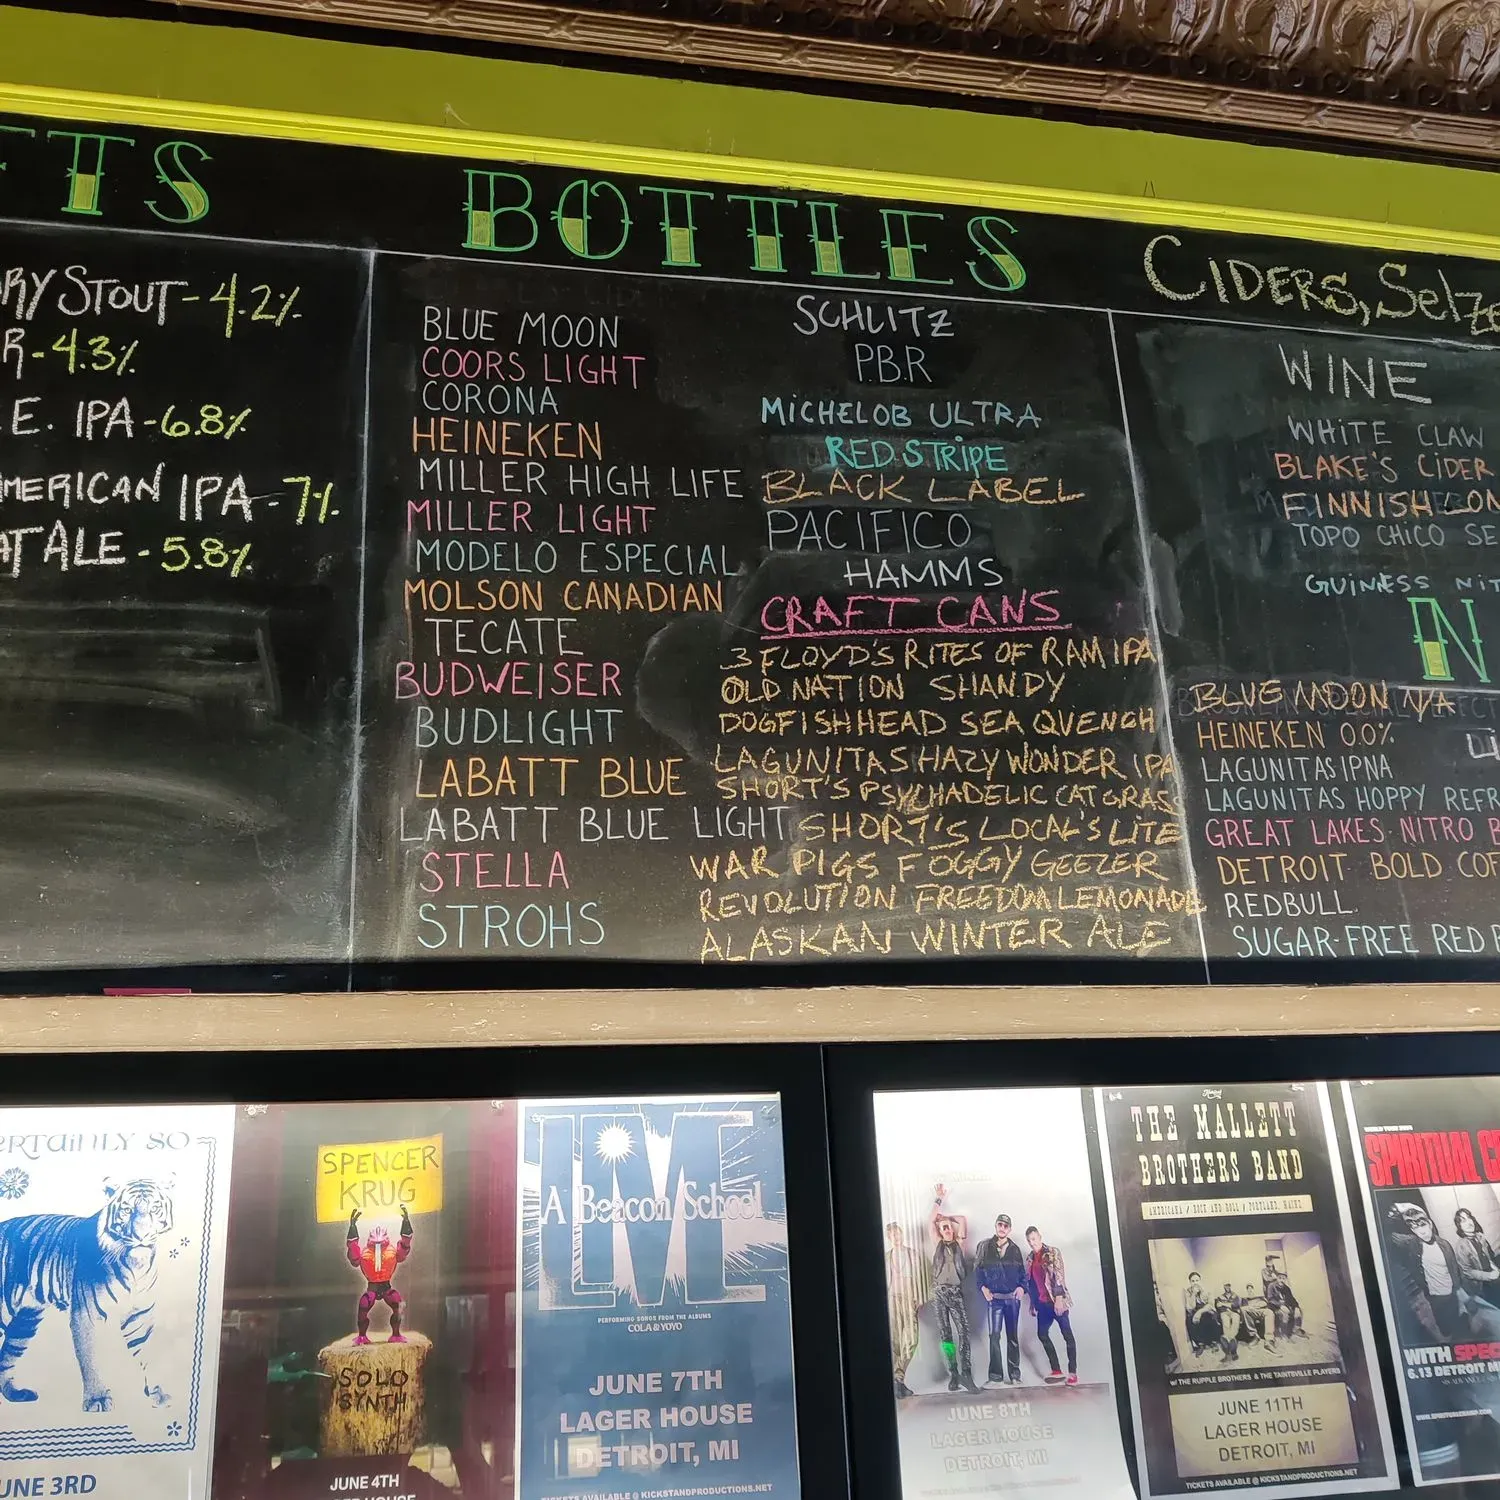 BOTTLES
CIDERS,
STOUT-4.2%
-4.3%
E. IPA-6.8%
IPA-7%
ALE-5.8%
BLUE MOON
COORS LIGHT
CORONA
HEINEKEN
MILLER HIGH LIFE
MILLER LIGHT
MODELO ESPECIAL
MOLSON CANADIAN
TECATE
BUDWEISER
BUDLIGHT
LABATT BLUE
LABATT BLUE LIGHT
STELLA
STROHS
SCHLITZ
P.B.R
MICHELOB ULTRA
RED STRIPE
BLACK LABEL
PACIFICO
HAMMS
CRAFT CANS
3 FLOYD'S RITES OF RAM IPA
OLD NATION SHANDY
DOGFISHHEAD SEA QUENCH
LAGUNITAS HAZY WONDER IPA
SHORT'S PSYCHADELIC CAT GRASS
SHORT'S LOCAL'S LITE
WAR PIGS FOGGY GEEZER
REVOLUTION FREEDOM LEMONADE
ALASKAN WINTER ALE
WINE
WHITE CLAW
BLAKE'S CIDER
FINNISH
TOPO CHICO
GUINNESS
N
BLUE MOON N/A
HEINEKEN 0.0%
LAGUNITAS IPNA
LAGUNITAS HOPPY
GREAT LAKES NITRO
DETROIT BOLD
REDBULL
SUGAR-FREE RED
SO
JUNE 3RD
SPENCER
KRUG
SOLO
SYNTH
JUNE 4TH
A Beacon School
PERFORMING SONGS FROM THE ALBUMS
COLA & YOYO
JUNE 7TH
LAGER HOUSE
DETROIT, MI
TICKETS AVAILABLE @ KICKSTANDPRODUCTIONS.NET
JUNE 8TH
LAGER HOUSE
DETROIT, MI
THE MALLETT
BROTHERS BAND
AMERICANA / ROCK AND ROLL / PORTLAND, MAINE
W/ THE RUPPLE BROTHERS & THE TAINTSVILLE PLAYERS
JUNE 11TH
LAGER HOUSE
DETROIT, MI
TICKETS AVAILABLE @ KICKSTANDPRODUCTIONS.NET
SPIRITUAL
WITH
6.13 DETROIT